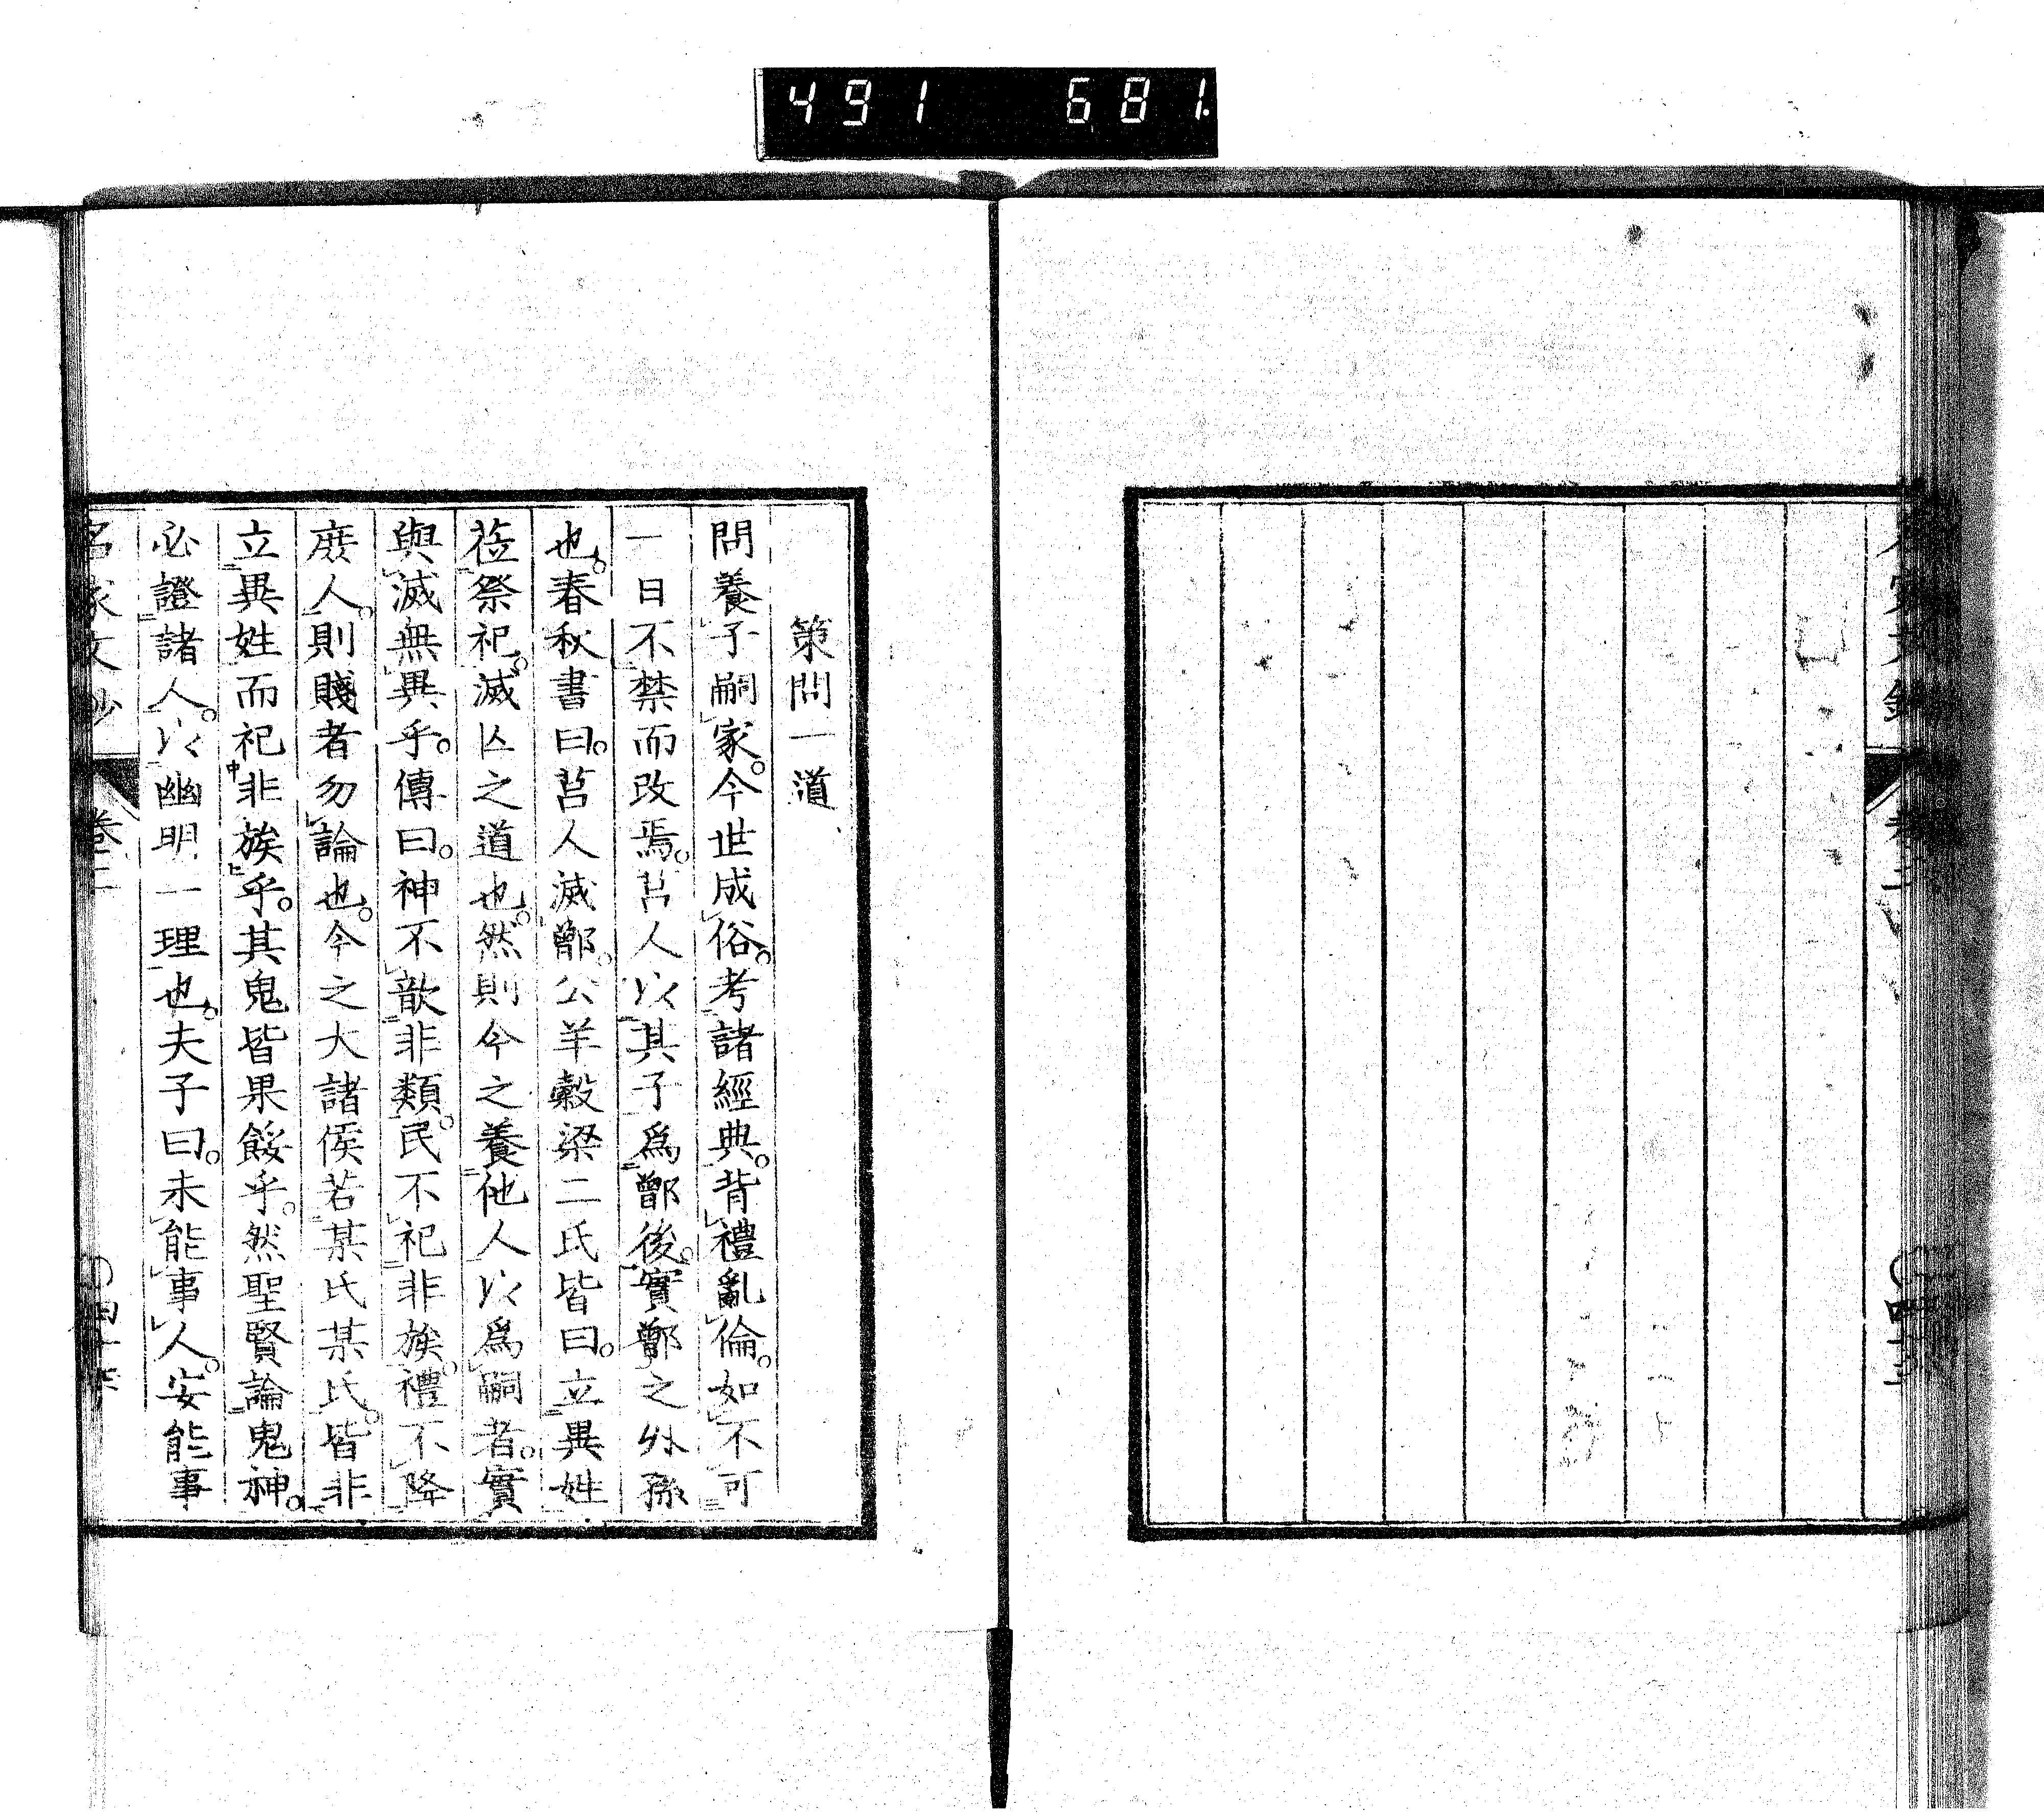 491 681.
策問一道
問養子嗣家。今世成俗。考諸經典。背禮亂倫。如不可
一日不禁而改焉。莒人以其子爲鄫後。實鄫之外孫
也。春秋書曰。莒人滅鄫。公羊穀梁二氏皆曰。立異姓
莅祭祀。滅亾之道也。然則今之養他人以爲嗣者。實
與滅無異乎。傳曰。神不歆非類。民不祀非族。禮不降
庶人。則賤者勿論也。今之大諸侯若某氏某氏。皆非
立異姓而祀非族乎。其鬼皆果餒乎。然聖賢論鬼神。
必證諸人。以幽明一理也。夫子曰。未能事人。安能事
名家文抄 卷二